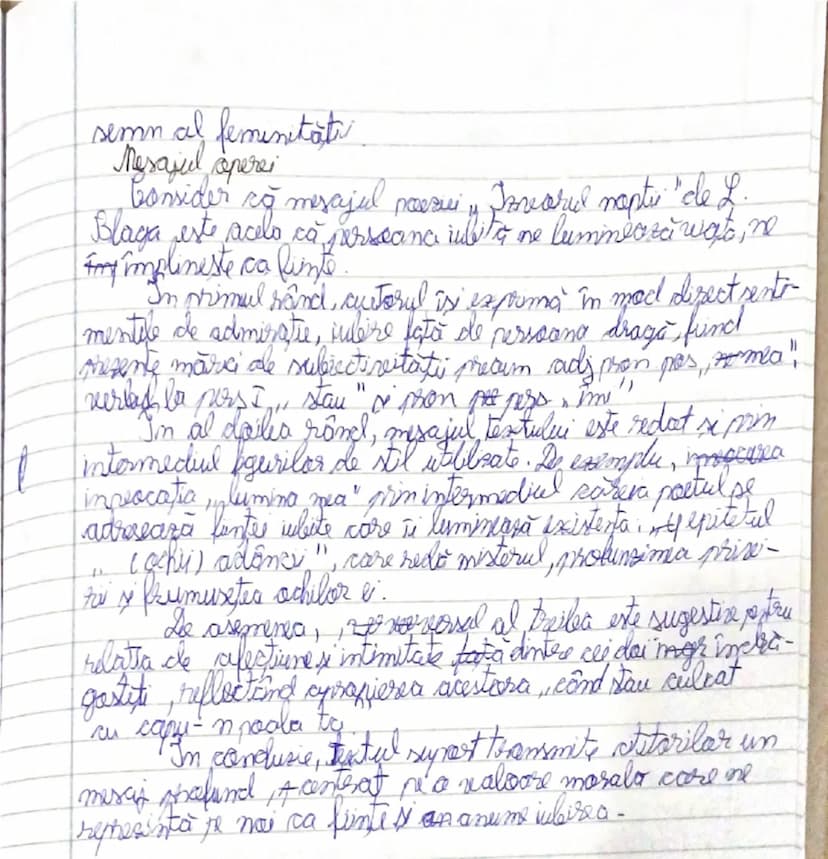 semn al feminității
Mesajul operei
Consider că mesajul poeziei „Izvorul nopții" de L.
Blaga este acela că persoana iubită ne luminează viața, ne
împlinește ca ființe.
În primul rând, autorul își exprimă în mod direct senti-
mentele de admirație, iubire față de persoana dragă, fiind
prezente mărci ale subiectivității precum adj pron pos „mea",
verbul la pers I „stau" și pron pers „îmi"
În al doilea rând, mesajul textului este redat și prin
intermediul figurilor de stil utilizate. De exemplu,
invocația „lumina mea" prin intermediul căreia poetul se
adresează ființei iubite care îi luminează existența. epitetul
„(ochii) adânci", care redă misterul, profunzimea privi-
rii și frumusețea ochilor ei.
De asemenea, versul al treilea este sugestiv pentru
relația de afecțiune și intimitate dintre cei doi îndră-
gostiți, reflectând apropierea acestora „când stau culcat
cu capu-n poala ta
În concluzie, textul suport transmite cititorilor un
mesaj profund, centrat pe o valoare morala care ne
reprezintă pe noi ca ființe și anume iubirea.